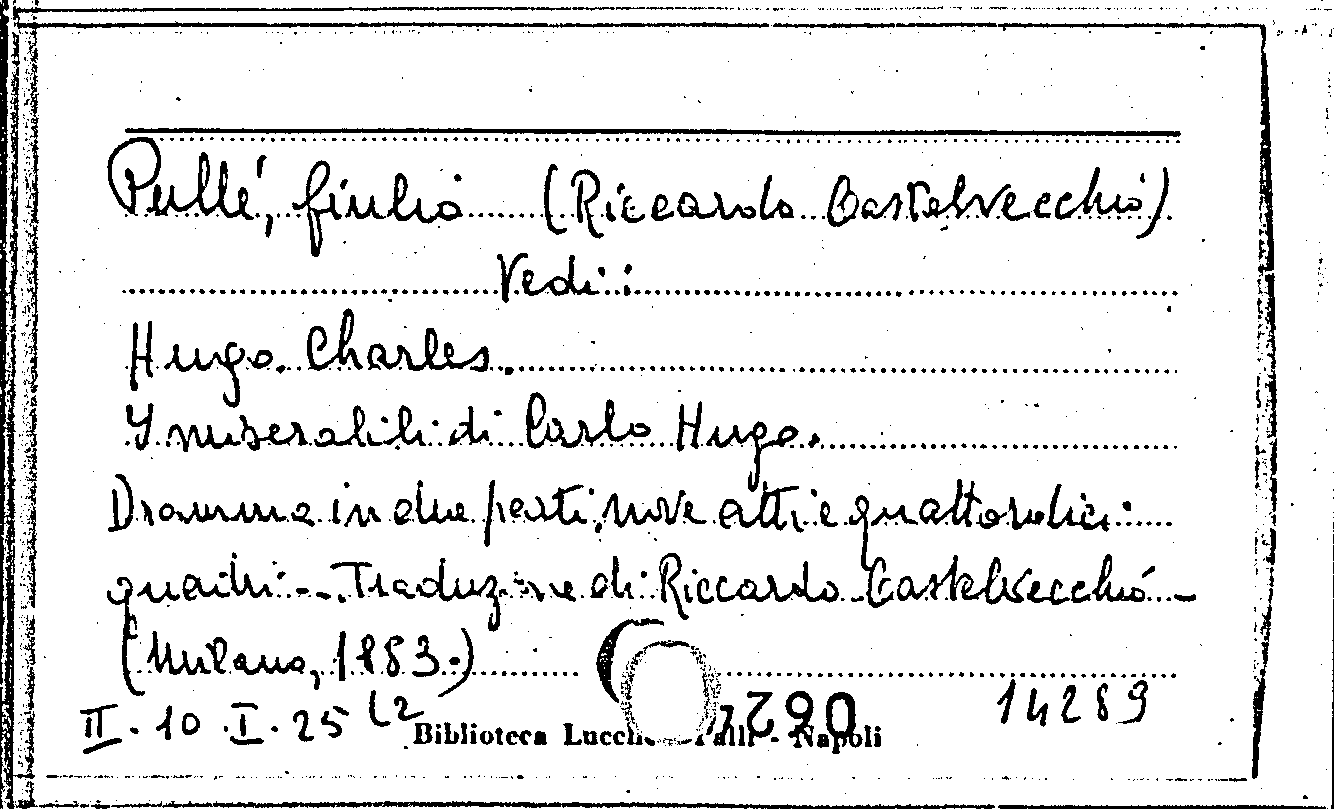 Pullé, Giulio (Riccardo Castelvecchio)
Vedi:
Hugo. Charles.
I miserabili di Carlo Hugo.
Dramma in due parti, nove atti e quattordici
quadri -. Traduzione di Riccardo Castelvecchio -
(Milano, 1883.)
II. 10. I. 25 (2
14289
Biblioteca Napoli